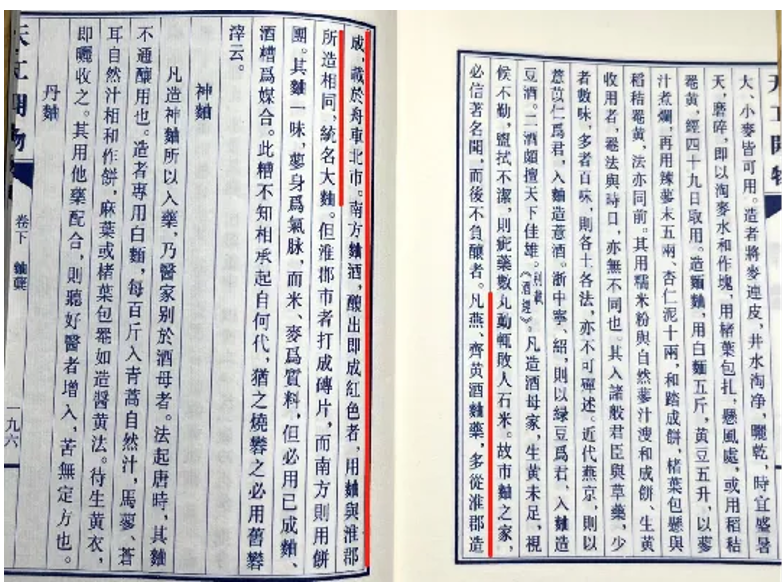 天工開物
大、小麥皆可用。造者將麥連皮,井水淘净,曬乾,時宜盛暑
天,磨碎,即以淘麥水和作塊,用楮葉包扎,懸風處,或用稻秸
罨黄,經四十九日取用。造麵麯,用白麵五斤,黄豆五升,以蓼
汁煮爛,再用辣蓼末五兩、杏仁泥十兩,和踏成餅,楮葉包懸與
稻秸罨黄,法亦同前。其用糯米粉與自然蓼汁溲和成餅,生黄
收用者,罨法與時日,亦無不同也。其入諸般君臣與草藥,少
者數味,多者百味,則各土各法,亦不可殫述。近代燕京,則以
薏苡仁爲君,入麯造薏酒。浙中寧、紹,則以緑豆爲君,入麯造
豆酒。二酒頗擅天下佳雄。别載《酒經》。凡造酒母家,生黄未足,視
候不勤,盥拭不潔,則疵藥數丸動輒敗人石米。故市麯之家,
必信著名聞,而後不負釀者。凡燕、齊黄酒麯藥,多從淮郡造
成,載於舟車北市。南方麯酒,釀出即成紅色者,用麯與淮郡
所造相同,統名大麯。但淮郡市者打成磚片,而南方則用餅
團。其麯一味,蓼身爲氣脉,而米、麥爲質料,但必用已成麯、
酒糟爲媒合。此糟不知相承起自何代,猶之燒礬之必用舊礬
滓云。
神麯
凡造神麯所以入藥,乃醫家别於酒母者。法起唐時,其麯
不通釀用也。造者專用白麵,每百斤入青蒿自然汁,馬蓼、蒼
耳自然汁相和作餅,麻葉或楮葉包罨如造醬黄法。待生黄衣,
即曬收之。其用他藥配合,則聽好醫者增入,苦無定方也。
丹麯
天工開物
卷下 麯蘗
一九六